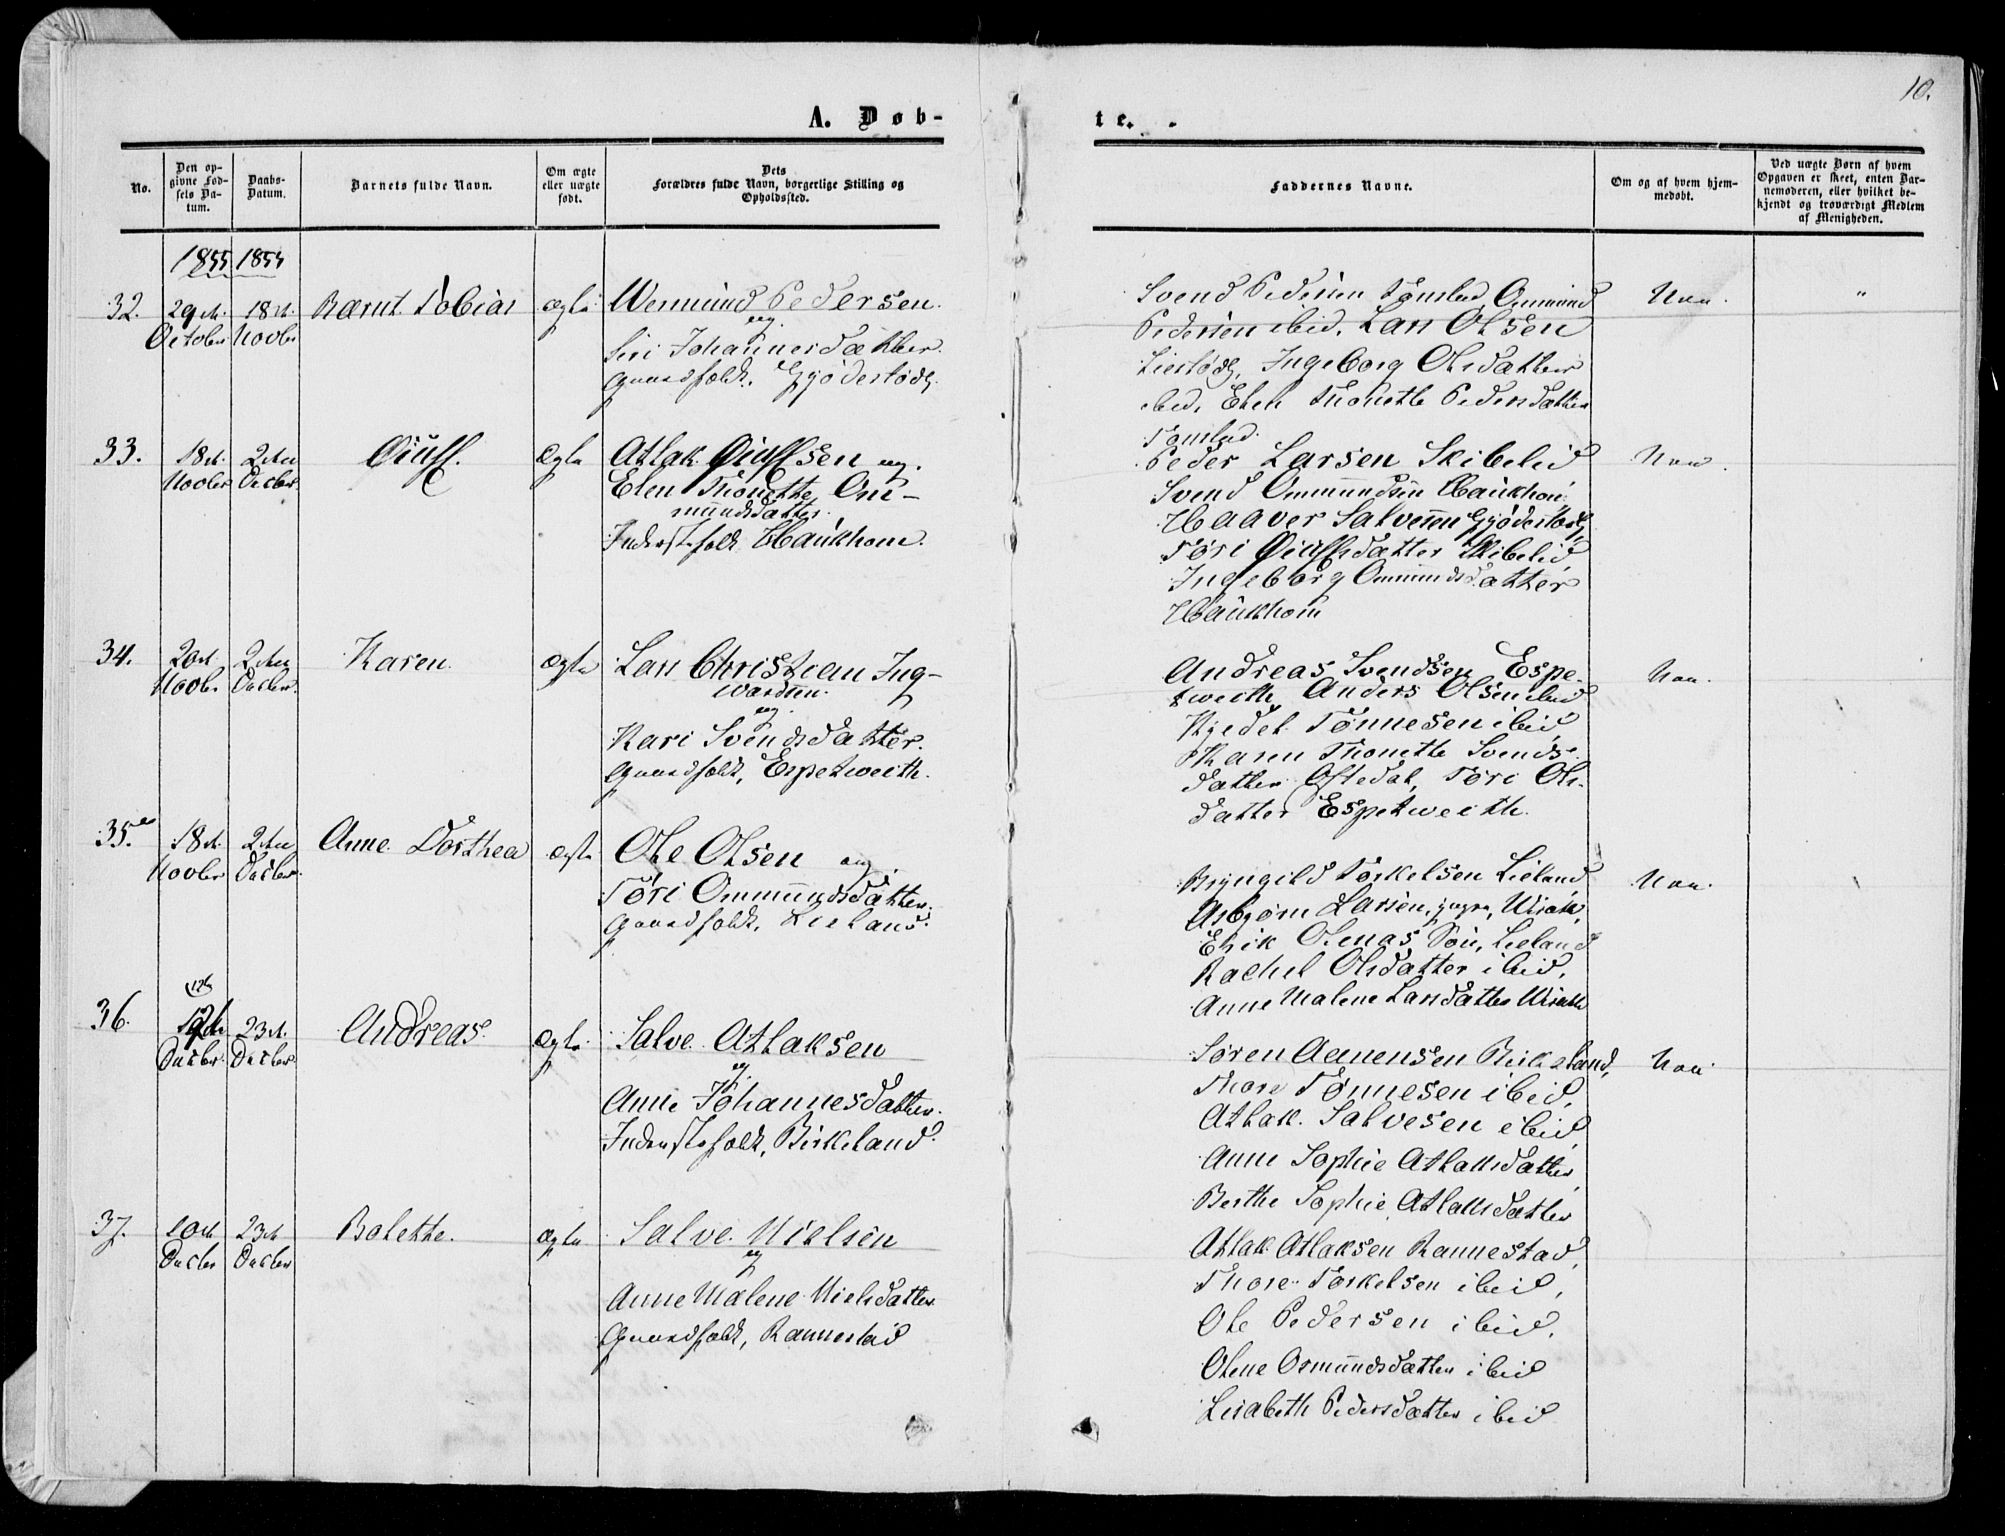 10.
A. Døb-
te.
No.
Den op-
givne Fød-
sels Da-
tum.
Daabs-
Datum.
Barnets fulde Navn.
Om ægte
eller uægte
født.
Dets
Forældres fulde Navn, borgerlige Stilling og
Opholdssted.
Faddernes Navne.
Om og af hvem hjem-
medøbt.
Ved uægte Børn af hvem
Opgaven er skeet, enten Bar-
nemoderen, eller hvilket be-
kjendt og troværdigt Medlem
af Menigheden.
1855 1855
32. 29de October 18de Novbr Bærnt Tobias ægte
Wermund Pedersen
og
Siri Johannesdatter
Gaardfolk, Gyødestøl
Svend Pedersen Tonstad, Ommund
Pedersen ibid, Lars Olsen
Liestøl, Ingeborg Olsdatter
ibid, Elen Thonette Pedersdatter
Tonstad.
Nei.
"
33. 18de Novbr 2den Decbr. Øiulf. Ægte
Atlak Øiulfsen og
Elen Thonette Om-
mundsdatter
Inderstfolk Haukhom.
Peder Larsen Skibelid
Svend Ommundsen Haukhom
Haaver Salvesen Gyødestøl
Tøri Øiulfsdatter Skibelid
Ingeborg Ommundsdatter
Haukhom
Nei.
34. 20de Novbr 2den Decbr. Karen ægte
Lars Christian Ing-
wardsen
og
Kari Svendsdatter.
Gaardfolk, Espetweith.
Andreas Svendsen Espe-
tweith, Anders Olsen ibid
Kjedel Tønnesen ibid
Karen Thonette Svends-
datter Oftedal, Tøri Ols-
datter Espetweith.
Nei.
35. 18de Novbr 2den Decbr. Anne Dorthea ægte
Ole Olsen og
Tøri Ommundsdatter
Gaardfolk, Lieland.
Bryngild Torkelsen Lieland
Asbjørn Larsen, yngre, Wirak,
Erik Olenas Søn, Lieland
Rachel Olsdatter ibid,
Anne Malene Larsdatter Wirak
Nei.
36. 12te Decbr. 23de Decbr. Andreas Ægte
Salve Atlaksen
og
Anne Johannesdatter.
Inderstfolk, Birkeland.
Søren Aanensen Birkeland,
Thore Tønnesen ibid,
Atlak Salvesen ibid,
Anne Sophie Atlaksdatter,
Berthe Sophie Atlaksdatter
Nei.
37. 10de Decbr 23de Decbr Bolette. ægte
Salve Nielsen
og
Anne Malene Nielsdatter
Gaardfolk, Rannestad
Atlak Atlaksen Rannestad,
Thore Torkelsen ibid,
Ole Pedersen ibid,
Olene Osmundsdatter ibid
Lisabeth Pedersdatter ibid